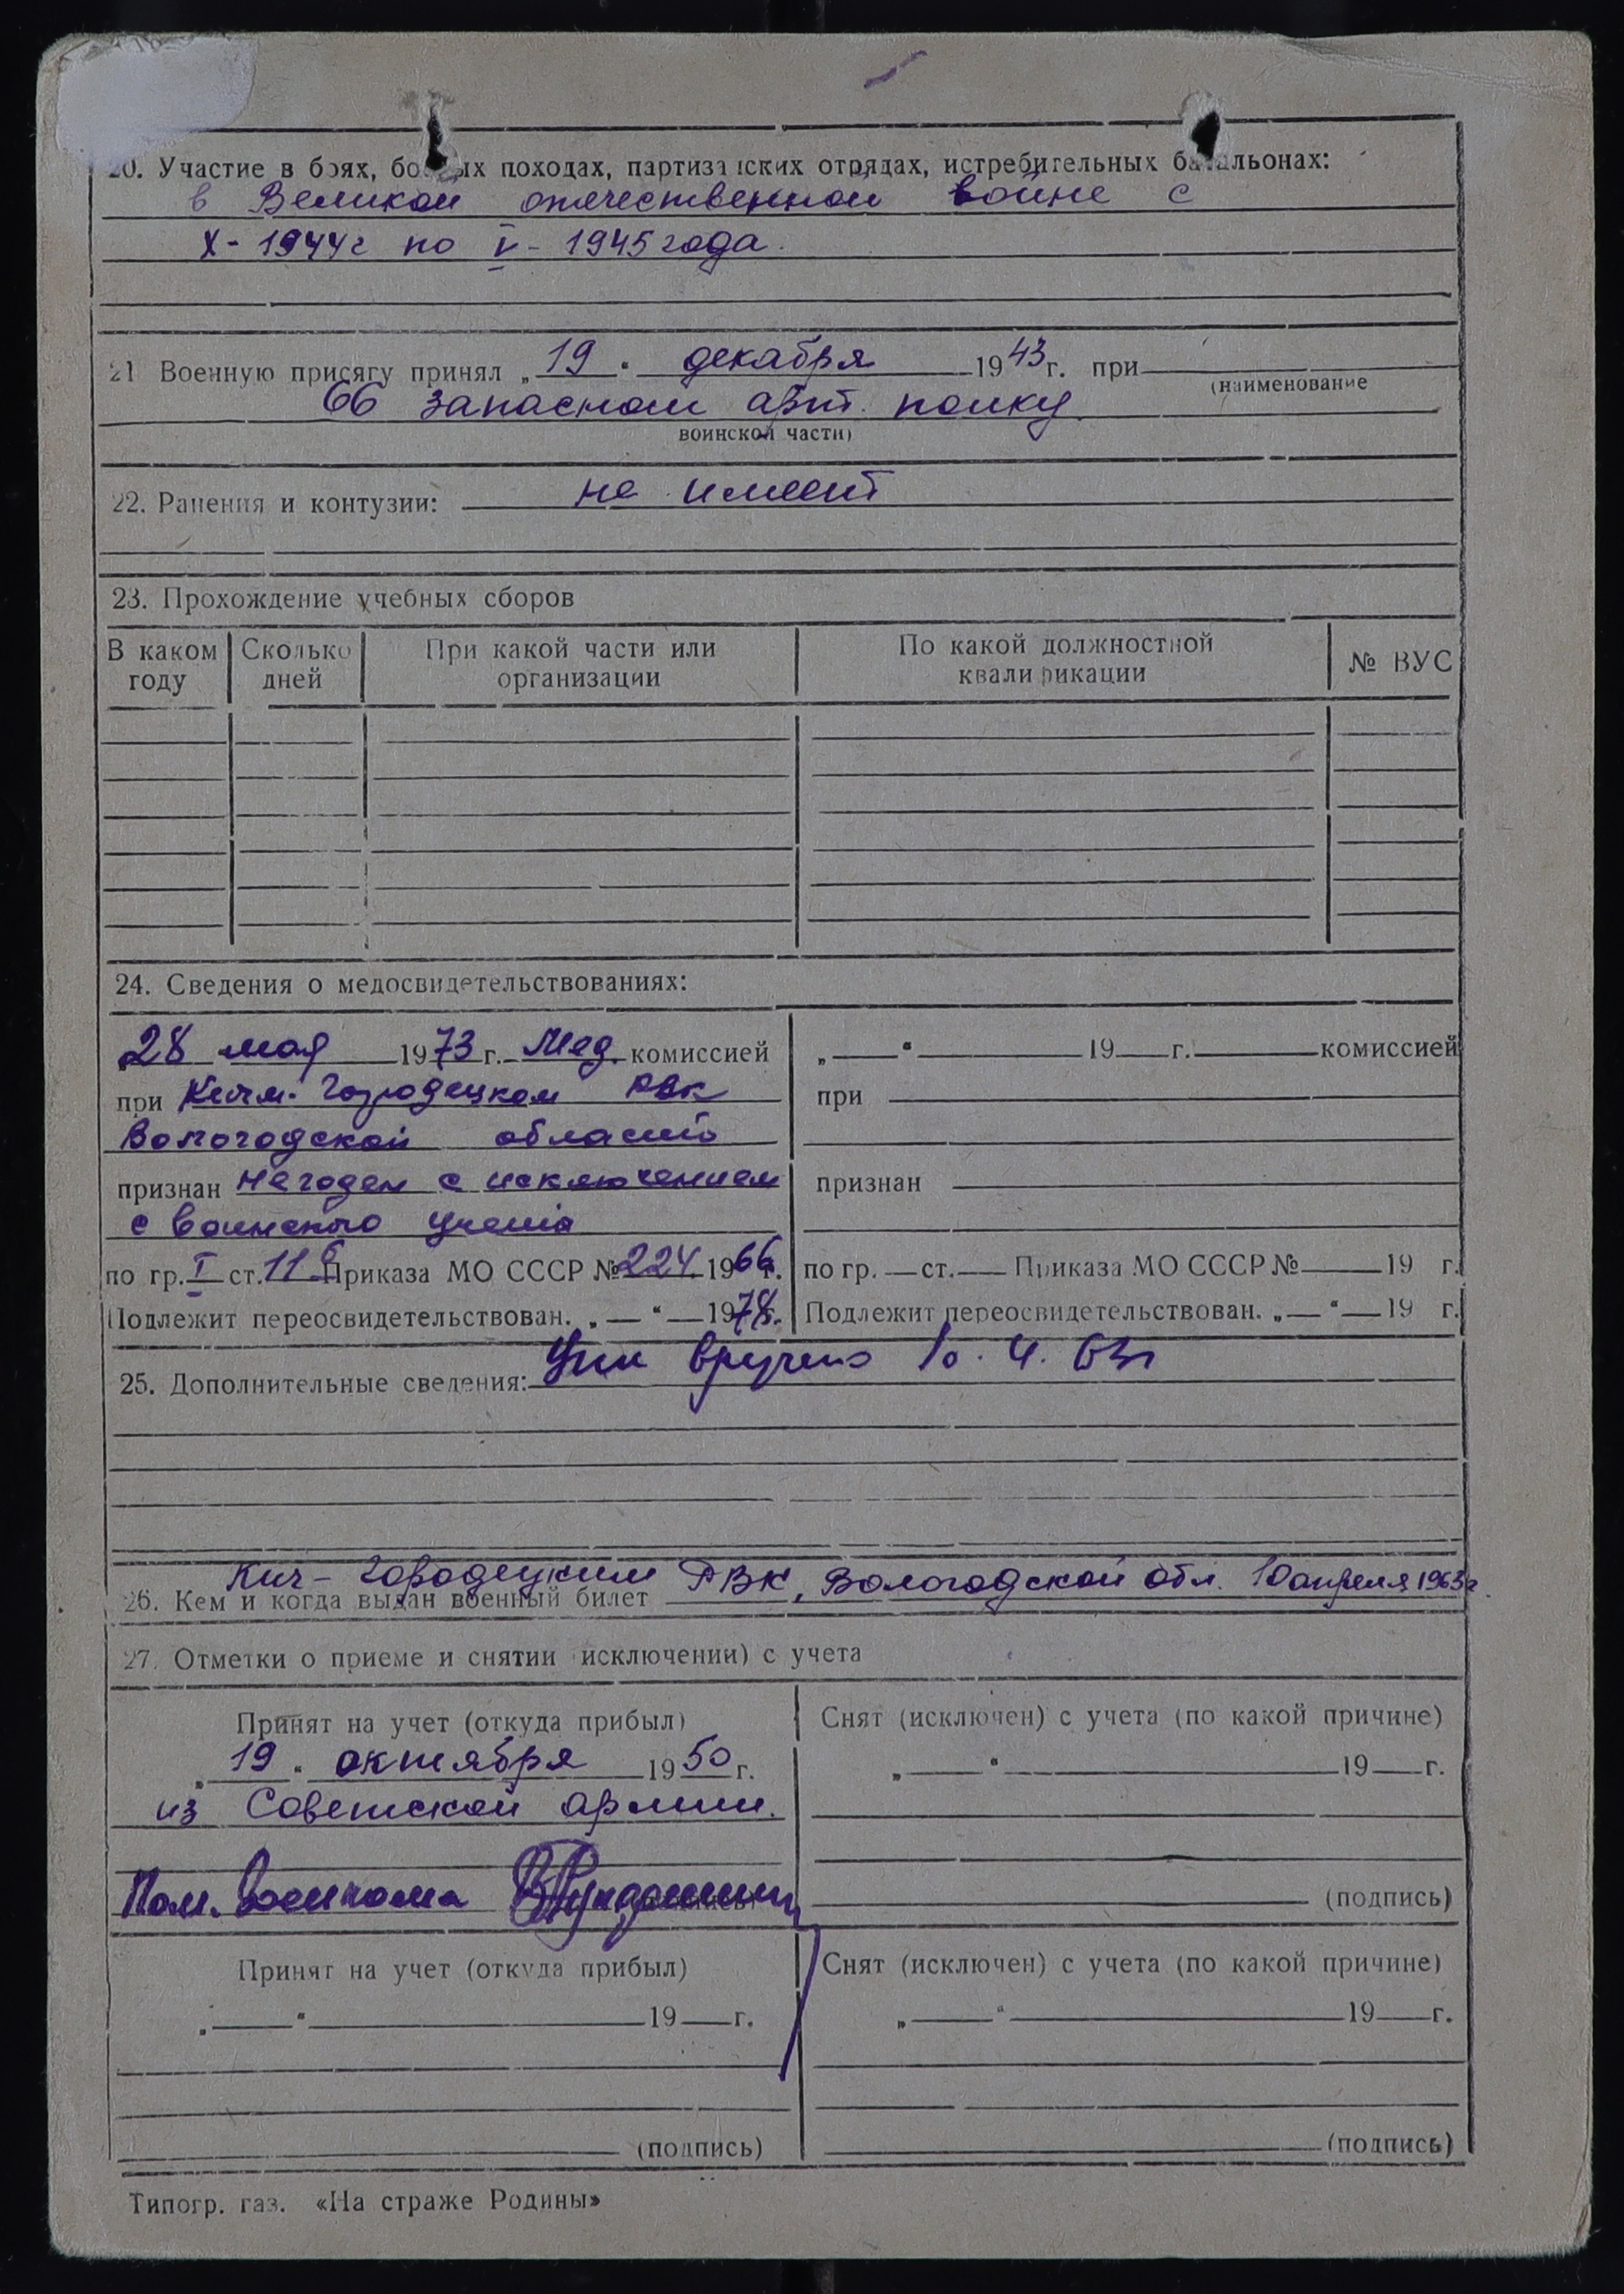 20. Участие в боях, боевых походах, партизанских отрядах, истребительных батальонах:
в Великой отечественной войне с
X - 1944г по V - 1945 года.
21 Военную присягу принял „19“ декабря 1943 г. при
(наименование
66 запасном арт. полку
воинской части)
22. Ранения и контузии: не имеет
23. Прохождение учебных сборов
В каком году | Сколько дней | При какой части или организации | По какой должностной квалификации | № ВУС
24. Сведения о медосвидетельствованиях:
28 мая 1973 г. Мед. комиссией
при Кичм. Городецком РВК
Вологодской области
признан Негоден с исключением
с воинского учета
по гр. I ст. 11б Приказа МО СССР № 224 1966 г.
Подлежит переосвидетельствован. „ “ 197 г.
„ “ 19 г. комиссией
при
признан
по гр. ст. Приказа МО СССР № 19 г.
Подлежит переосвидетельствован. „ “ 19 г.
25. Дополнительные сведения: вручено 10. 4. 63г
Кич-Городецким РВК, Вологодской обл. 10 апреля 1963г.
26. Кем и когда выдан военный билет
27. Отметки о приеме и снятии (исключении) с учета
Принят на учет (откуда прибыл)
„19“ октября 1950 г.
из Советской армии.
Пом. Военкома
Снят (исключен) с учета (по какой причине)
„ “ 19 г.
(подпись)
Принят на учет (откуда прибыл)
„ “ 19 г.
(подпись)
Снят (исключен) с учета (по какой причине)
„ “ 19 г.
(подпись)
Типогр. газ. «На страже Родины»